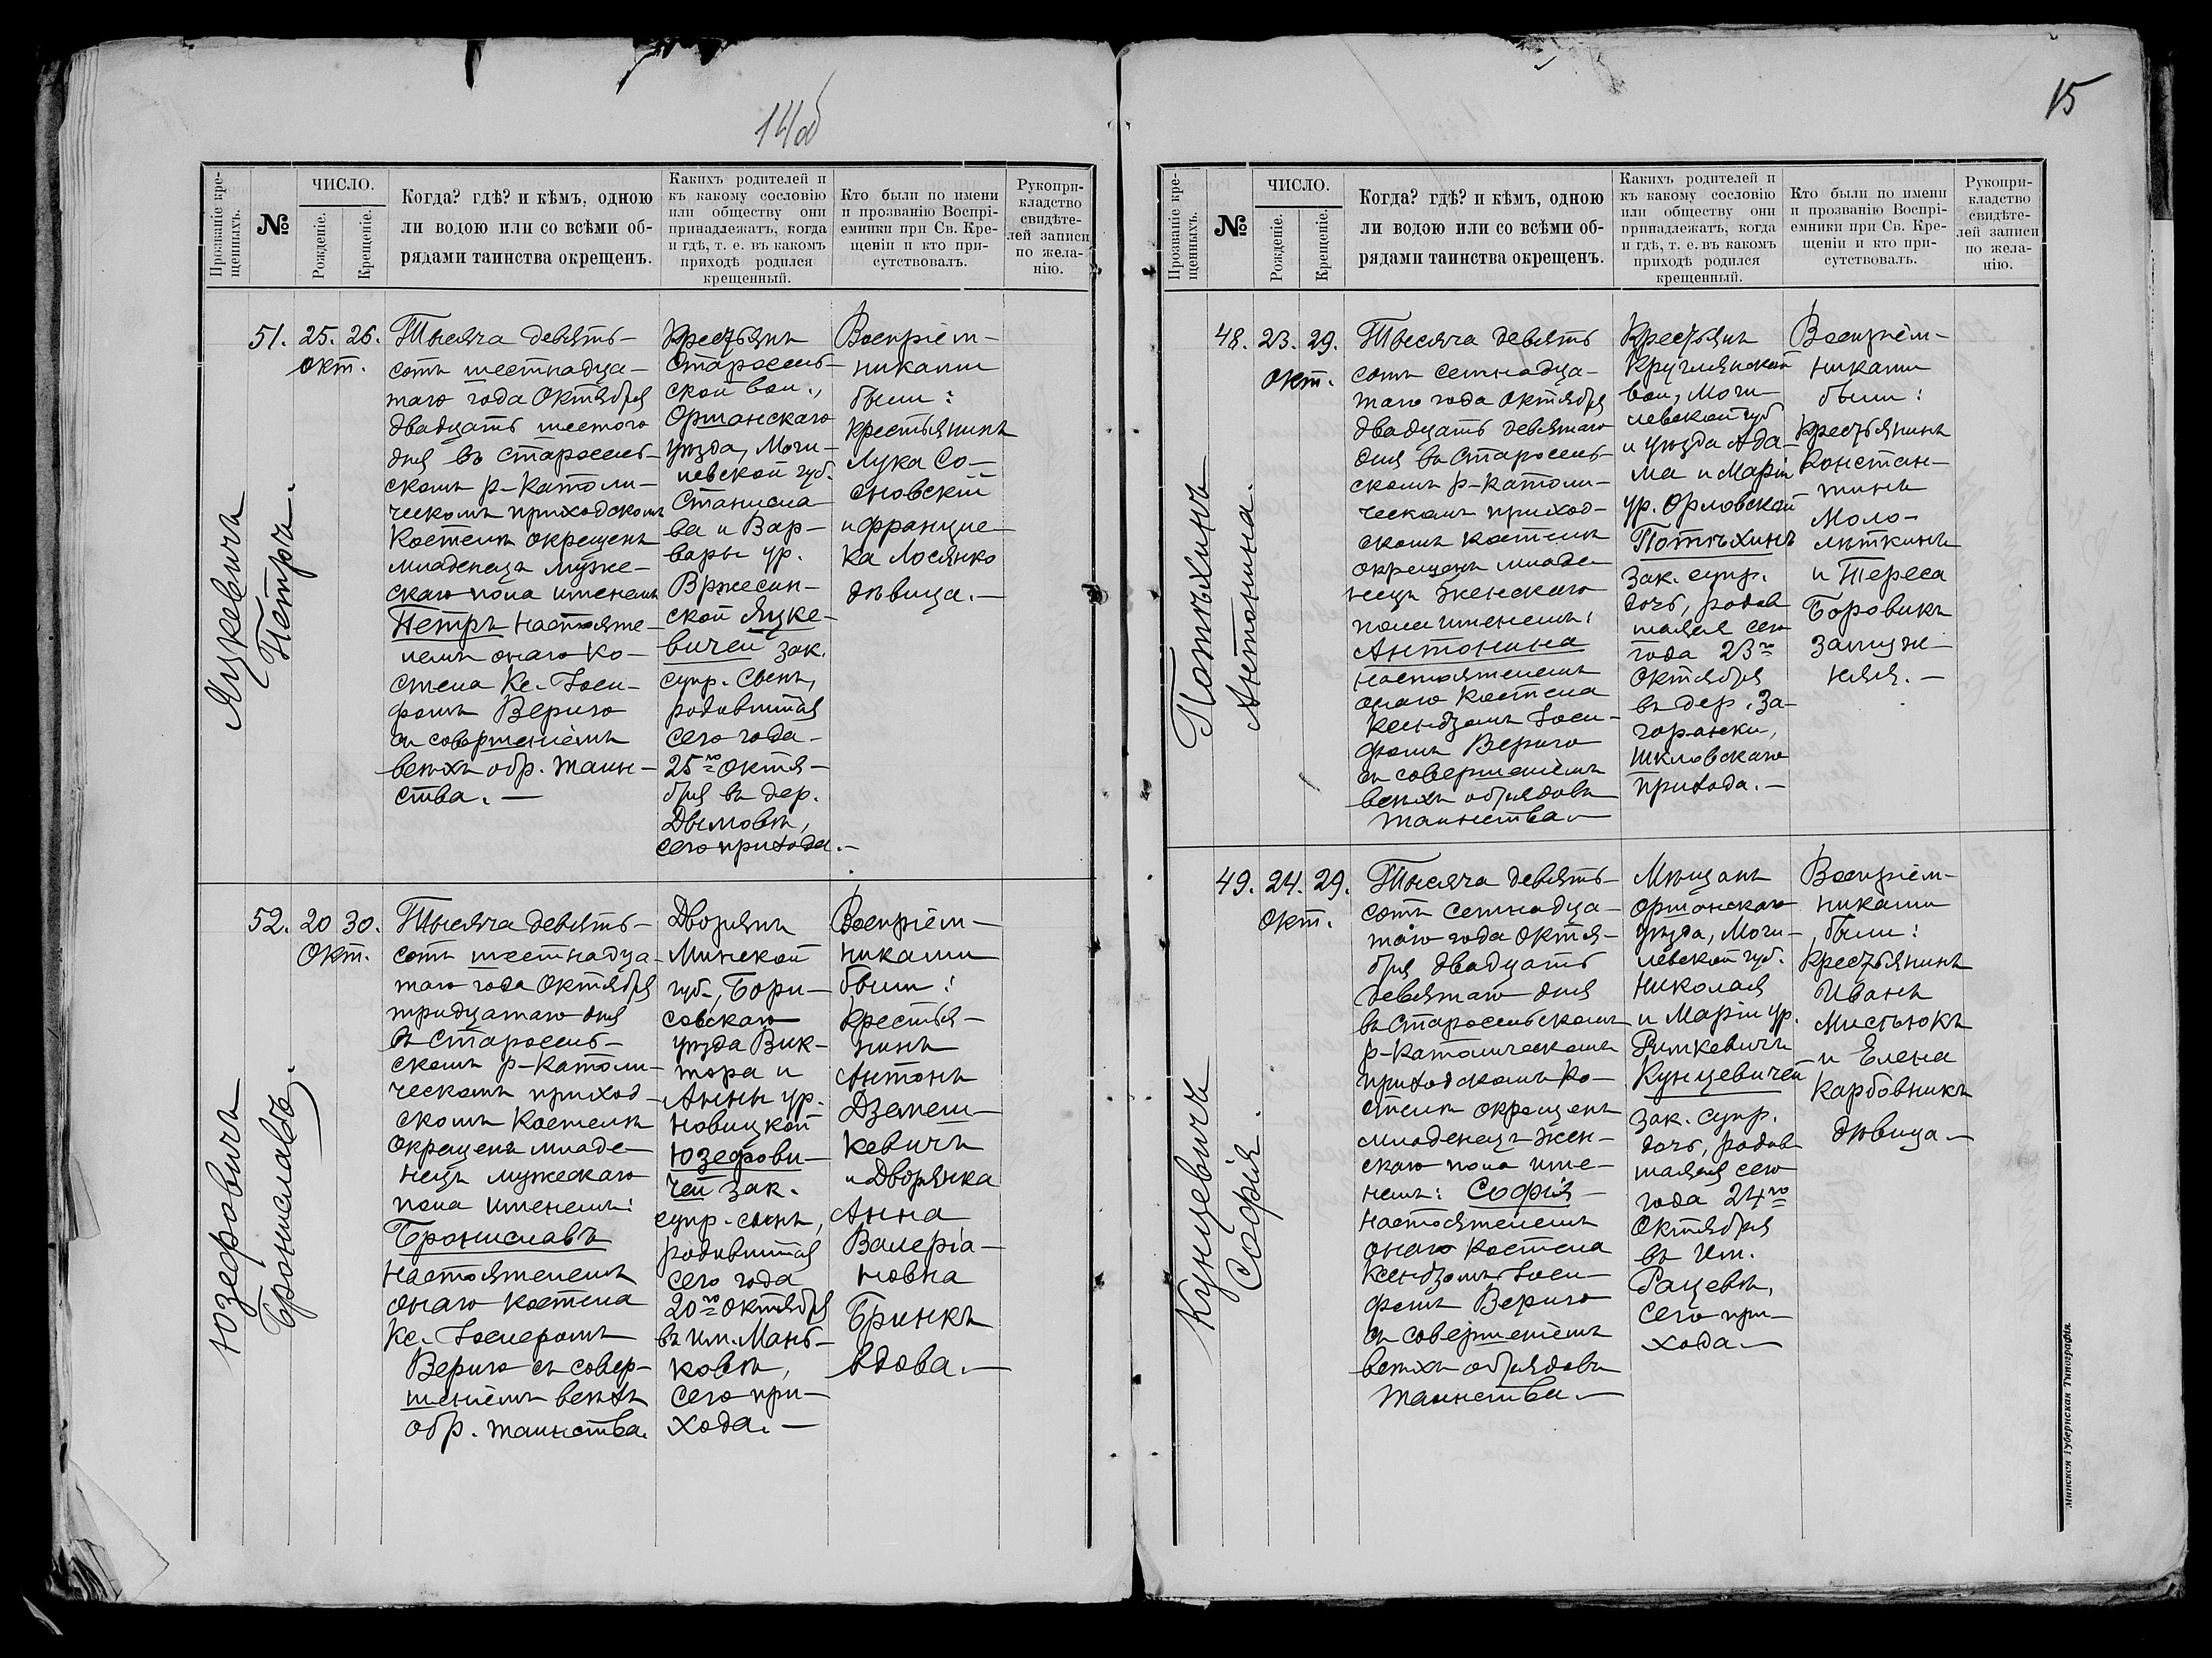 14об
Прозваніе кре-
щенныхъ.
№
ЧИСЛО.
Рожденіе.
Крещеніе.
Когда? гдѣ? и кѣмъ, одною
ли водою или со всѣми об-
рядами таинства окрещенъ.
Какихъ родителей и
къ какому сословію
или обществу они
принадлежатъ, когда
и гдѣ, т. е. въ какомъ
приходѣ родился
крещенный.
Кто были по имени
и прозванію Воспрі-
емники при Св. Кре-
щеніи и кто при-
сутствовалъ.
Рукопри-
кладство
свидѣте-
лей записи
по жела-
нію.
Яцкевичъ
Петръ.
51. 25. 26.
окт.
Тысяча девять-
сотъ шестнадца-
таго года Октября
двадцать шестого
дня въ Старосель-
скомъ р-католи-
ческомъ приходскомъ
Костелѣ окрещенъ
младенецъ муже-
скаго пола именемъ
Петръ Настояте-
лемъ онаго Ко-
стела Кс. Іоси-
фомъ Верыго
съ совершеніемъ
всѣхъ обр. таин-
ства. —
Крестьянъ
Старосель-
ской вол.,
Оршанскаго
уѣзда, Моги-
левской губ.
Станисла-
ва и Вар-
вары ур.
Вржесин-
ской Яцке-
вичей зак.
супр. Сынъ,
родившійся
сего года
25го Октя-
бря въ дер.
Дымовѣ,
сего прихода. —
Воспріем-
никами
были:
Крестьянинъ
Лука Со-
сновскій
и Францис-
ка Лосянко
дѣвица. —
Юзефовичъ
Брониславъ.
52. 20 30.
Окт.
Тысяча девять-
сотъ шестнадца-
таго года Октября
тридцатаго дня
въ Старосель-
скомъ р-католи-
ческомъ приход-
скомъ Костелѣ
окрещенъ младе-
нецъ мужескаго
пола именемъ:
Брониславъ
Настоятелемъ
онаго Костела
Кс. Іосифомъ
Верыго съ совер-
шеніемъ всѣхъ
обр. таинства.
Дворянъ
Минской
губ., Бори-
совскаго
уѣзда Вик-
тора и
Анны ур.
Новицкой
Юзефови-
чей зак.
супр. сынъ,
родившійся
сего года
20го Октября
въ им. Мань-
ковѣ,
сего при-
хода. —
Воспріем-
никами
были:
Крестья-
нинъ
Антонъ
Дземеш-
кевичъ
и Дворянка
Анна
Валеріа-
новна
Бринкъ
вдова. —
15
Прозваніе кре-
щенныхъ.
№
ЧИСЛО.
Рожденіе.
Крещеніе.
Когда? гдѣ? и кѣмъ, одною
ли водою или со всѣми об-
рядами таинства окрещенъ.
Какихъ родителей и
къ какому сословію
или обществу они
принадлежатъ, когда
и гдѣ, т. е. въ какомъ
приходѣ родился
крещенный.
Кто были по имени
и прозванію Воспрі-
емники при Св. Кре-
щеніи и кто при-
сутствовалъ.
Рукопри-
кладство
свидѣте-
лей записи
по жела-
нію.
Потѣхинъ
Антонина.
48. 23. 29.
Окт.
Тысяча девять
сотъ семнадца-
таго года Октября
двадцать девятаго
дня въ Старосель-
скомъ р-католи-
ческомъ приход-
скомъ костелѣ
окрещенъ младе-
нецъ женскаго
пола именемъ:
Антонина
настоятелемъ
онаго Костела
Ксендзомъ Іоси-
фомъ Верыго
съ совершеніемъ
всѣхъ обрядовъ
таинства. —
Крестьянъ
Круглянской
вол, Моги-
левской губ
и уѣзда Ада-
ма и Маріи
ур. Орловской
Потѣхинъ
зак. супр.
дочь, родив
шаяся сего
года 23го
Октября
въ дер. За-
горанки,
Шкловскаго
прихода. —
Воспріем-
никами
были:
Крестьянинъ
Констан-
тинъ
Моло-
лѣткинъ
и Тереса
Боровикъ
замуж-
няя. —
Кунцевичъ
Софія.
49. 24. 29.
Окт.
Тысяча девять-
сотъ семнадца-
таго года Октя-
бря двадцать
девятаго дня
въ Старосельскомъ
р-католическомъ
приходскомъ Ко-
стелѣ окрещенъ
младенецъ жен-
скаго пола име-
немъ: Софія —
Настоятелемъ
онаго Костела
Ксендзомъ Іоси-
фомъ Верыго
съ совершеніемъ
всѣхъ обрядовъ
таинства. —
Мѣщанъ
Оршанскаго
уѣзда, Моги-
левской губ.
Николая
и Маріи ур.
Римкевичъ
Кунцевичей
зак. супр.
дочь, родив
шаяся сего
года 24го
Октября
въ им.
Рацевѣ,
сего при-
хода. —
Воспріем-
никами
были:
Крестьянинъ
Иванъ
Мистьюкъ
и Елена
Карбовникъ
дѣвица. —
Минская Губернская Типографія.